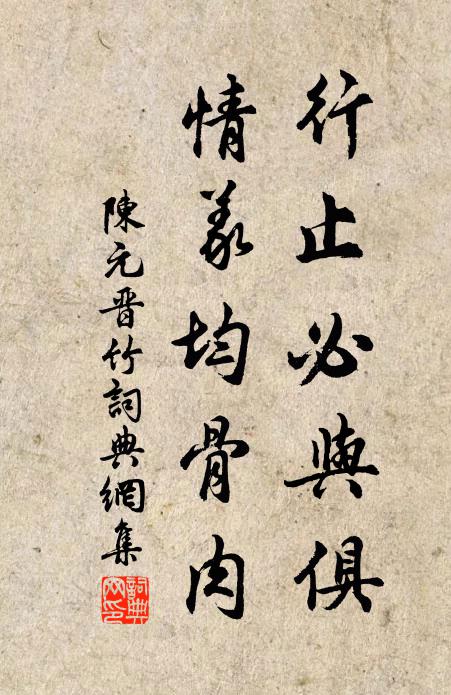 行止必與俱
情義均骨肉
陳元晋竹詞典網集
詞典网印